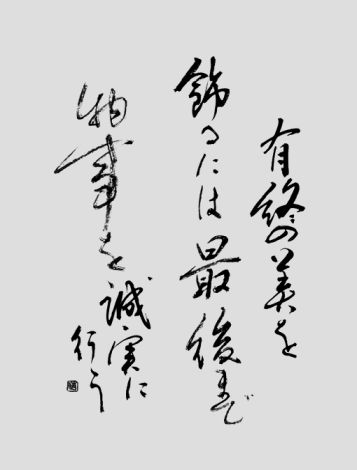 有終の美を
飾るには最後まで
物事を誠実に
行う